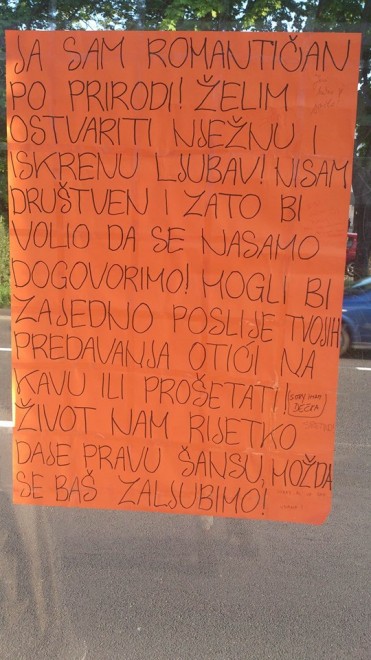 JA SAM ROMANTIČAN
PO PRIRODI! ŽELIM
OSTVARITI NJEŽNU I
ISKRENU LJUBAV! NISAM
DRUŠTVEN I ZATO BI
VOLIO DA SE NASAMO
DOGOVORIMO! MOGLI BI
ZAJEDNO POSLIJE TVOJIH
PREDAVANJA OTIĆI NA
KAVU ILI PROŠETATI!
ŽIVOT NAM RIJETKO
DAJE PRAVU ŠANSU, MOŽDA
SE BAŠ ZALJUBIMO!